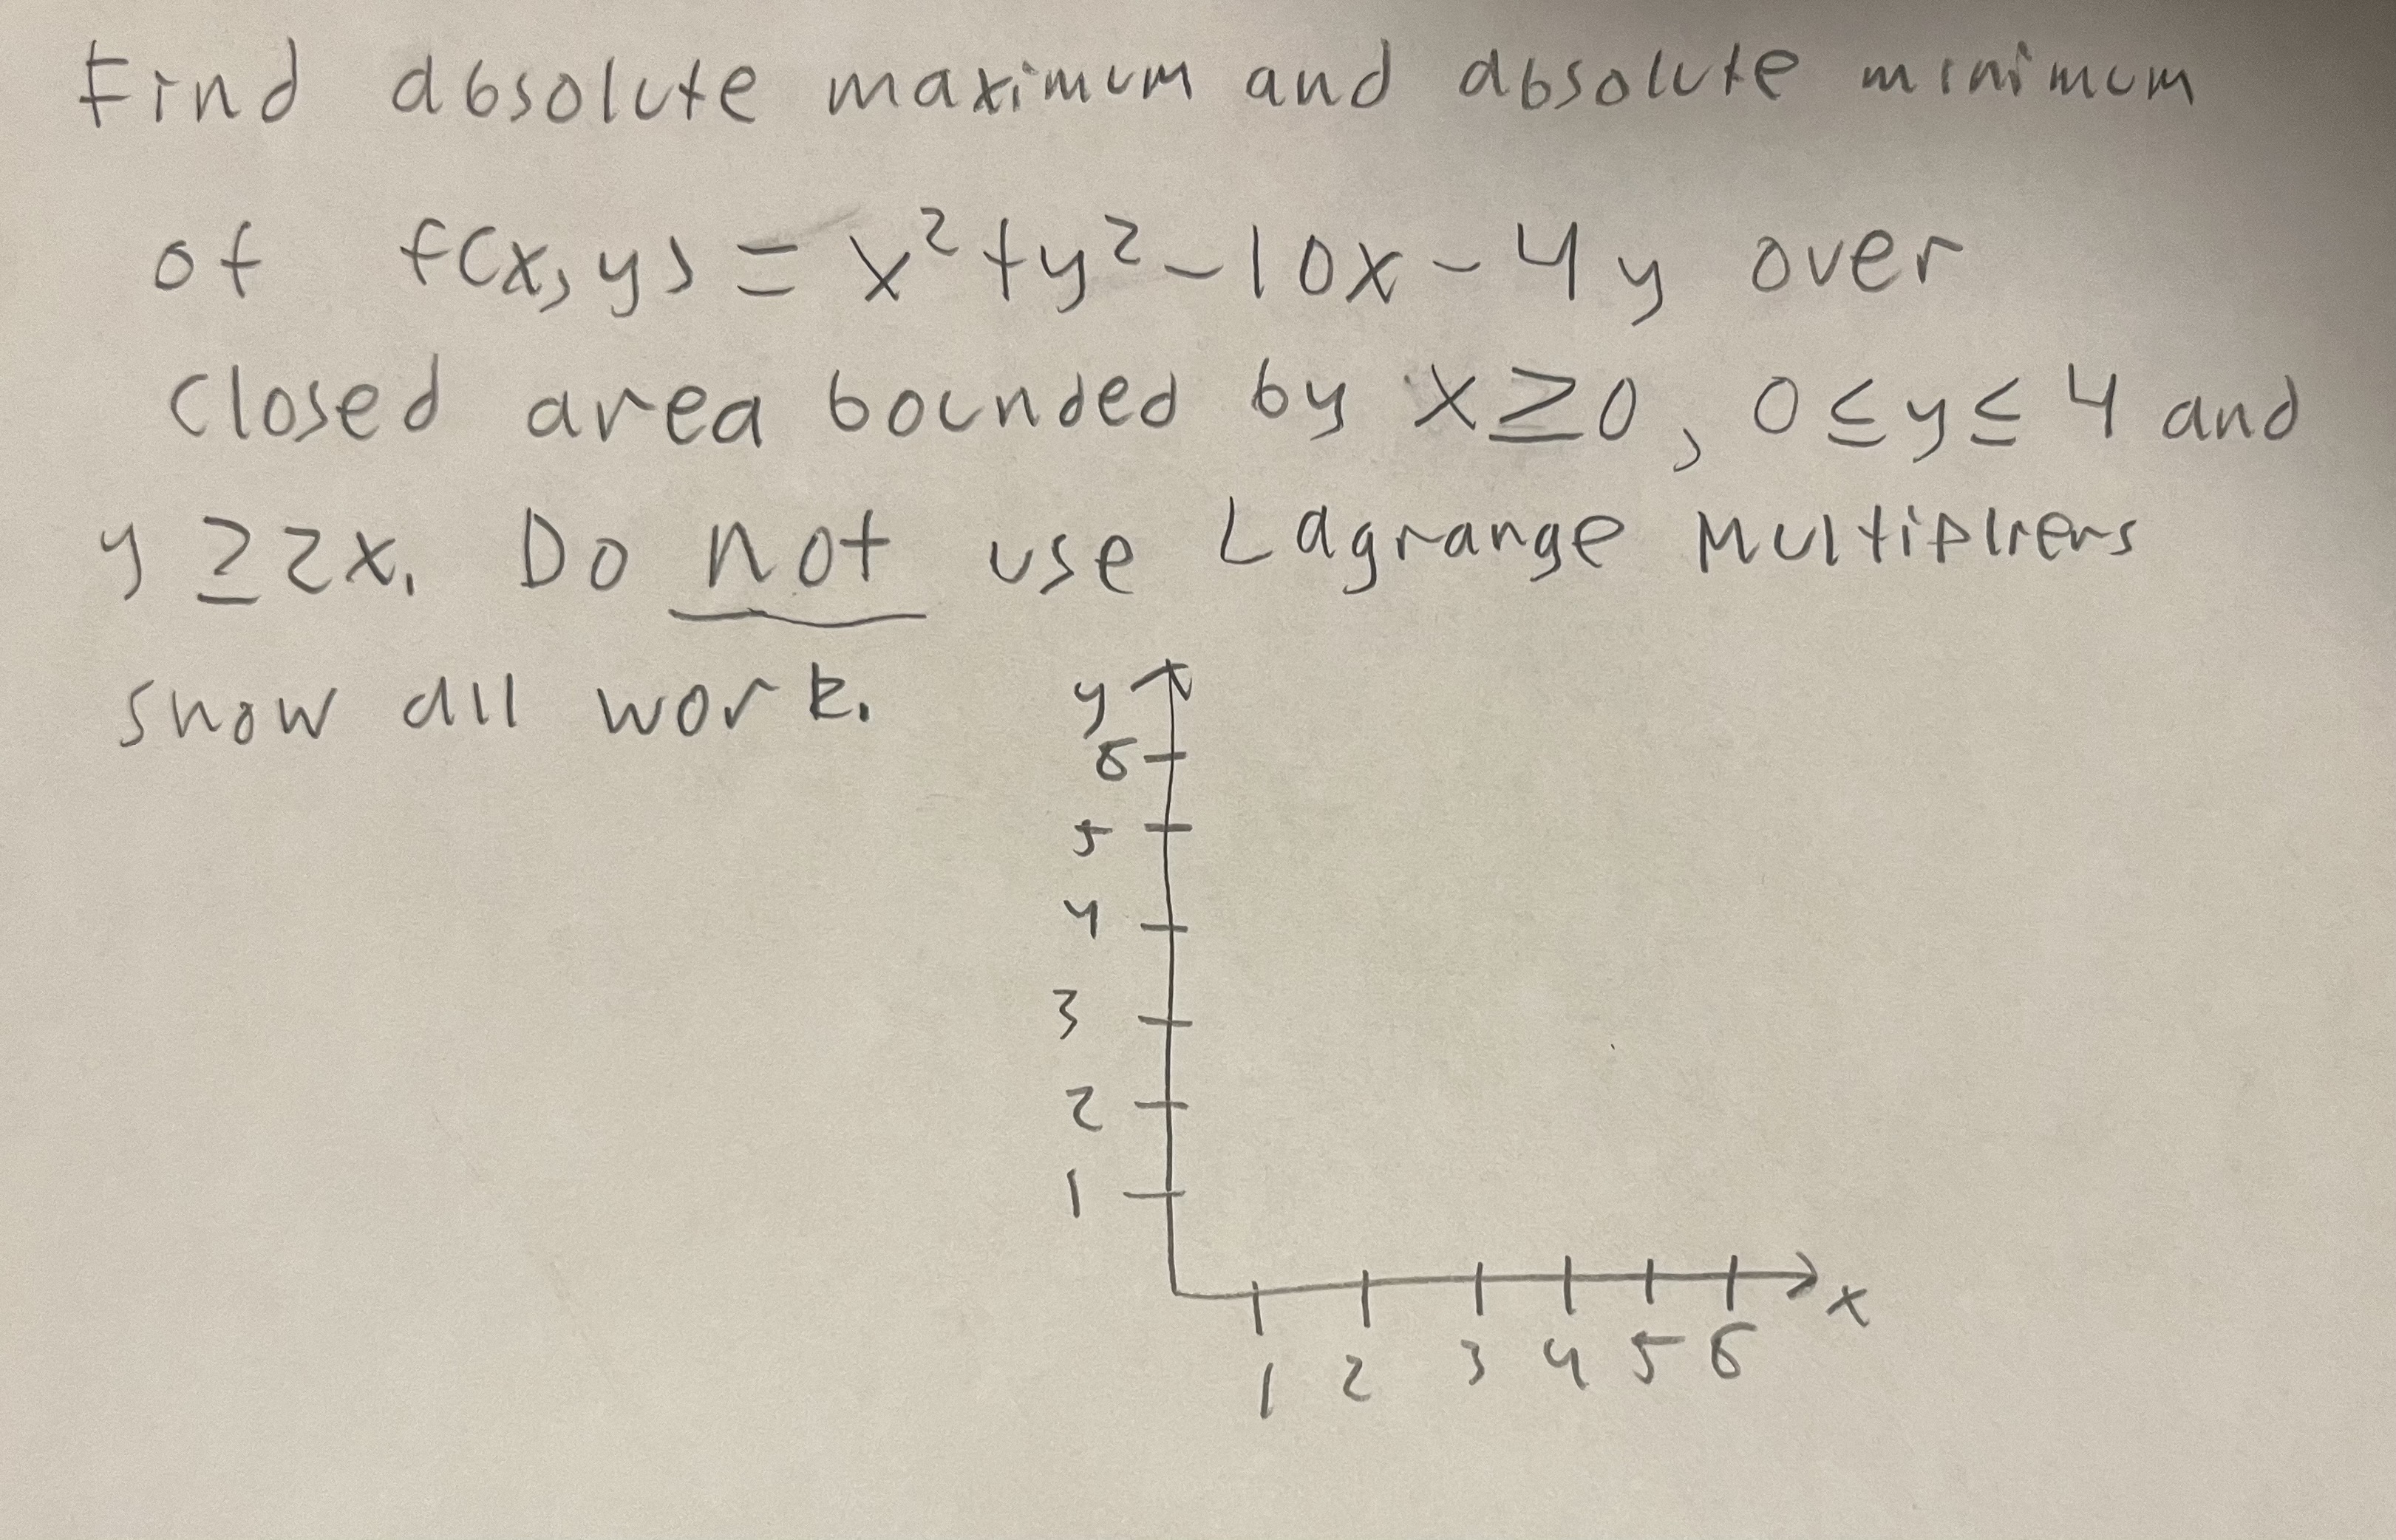 Find absolute maximum and absolute minimum
of f(x,y) = x² + y² - 10x - 4y over
closed area bounded by x ≥ 0, 0 ≤ y ≤ 4 and
y ≥ 2x. Do not use Lagrange Multipliers
show all work.
y
6
5
4
3
2
1
x
1 2 3 4 5 6